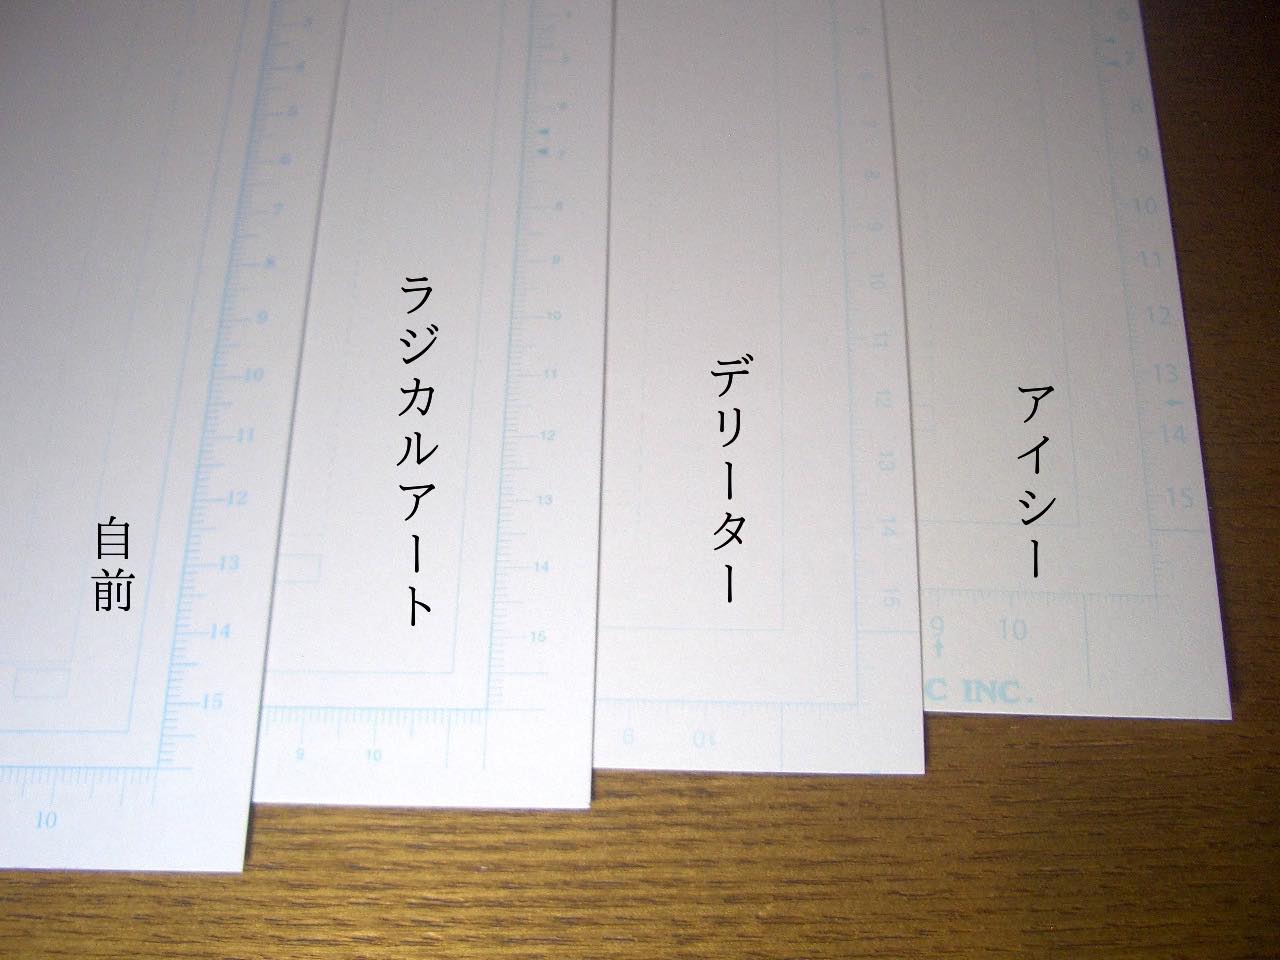 自前
ラジカルアート
デリーター
アイシー
3
4
5
6
7
8
9
10
11
12
13
14
15
10
6
7
8
9
10
11
12
13
14
15
9
10
8
9
10
11
12
13
14
15
9
10
6
7
8
9
10
11
12
13
14
15
9
10
C INC.